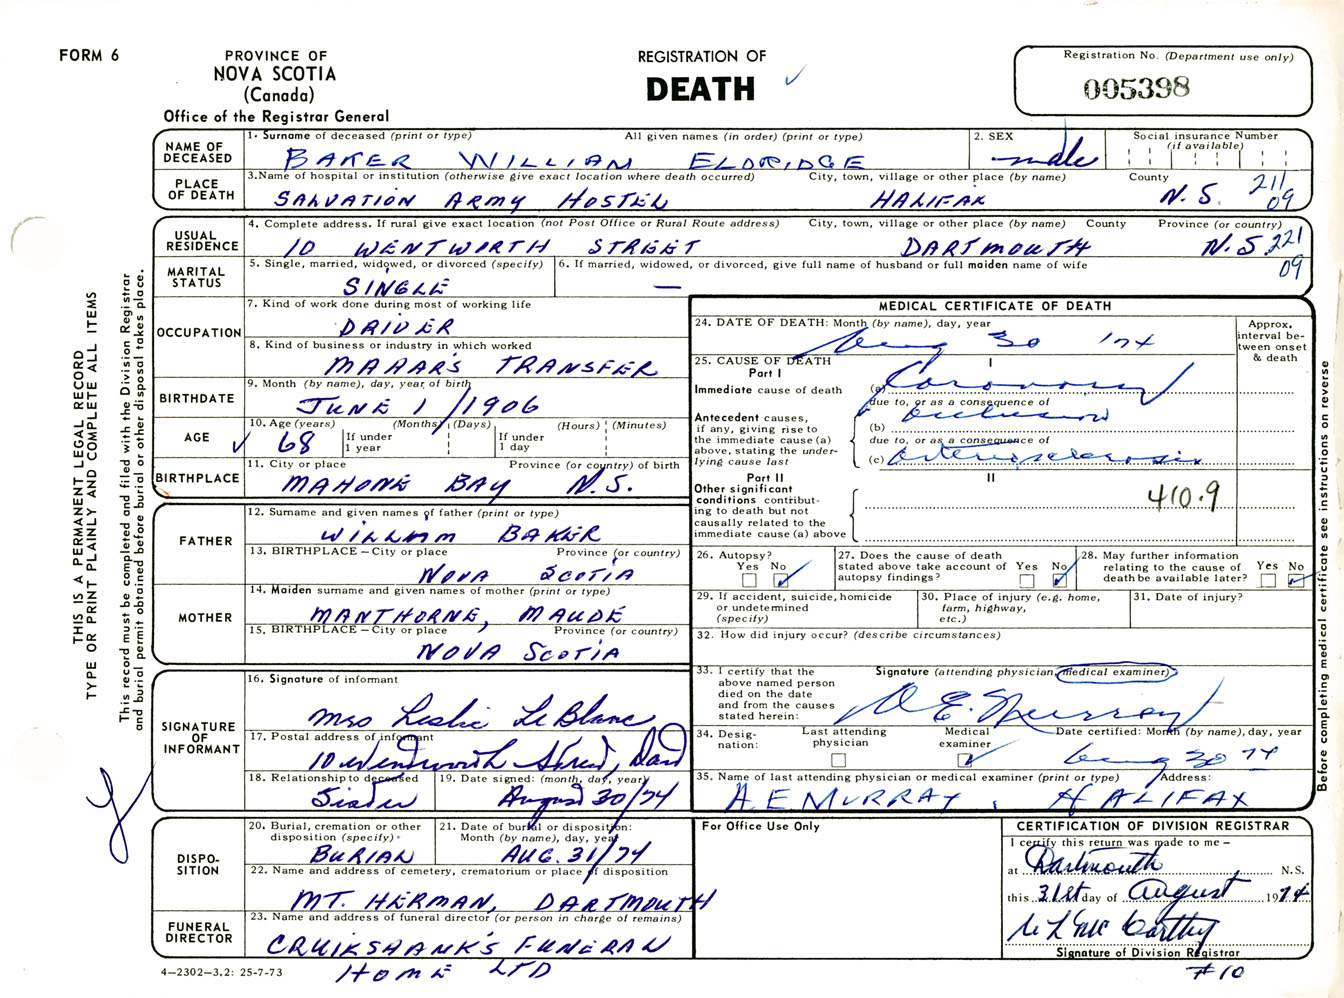 FORM 6
PROVINCE OF
NOVA SCOTIA
(Canada)
Office of the Registrar General
REGISTRATION OF
DEATH
Registration No. (Department use only)
005398
THIS IS A PERMANENT LEGAL RECORD
TYPE OR PRINT PLAINLY AND COMPLETE ALL ITEMS
This record must be completed and filed with the Division Registrar
and burial permit obtained before burial or other disposal takes place.
NAME OF DECEASED
1. Surname of deceased (print or type) All given names (in order) (print or type)
BAKER WILLIAM ELDRIDGE
2. SEX
male
Social insurance Number
(if available)
PLACE OF DEATH
3. Name of hospital or institution (otherwise give exact location where death occurred) City, town, village or other place (by name) County
SALVATION ARMY HOSTEL HALIFAX N.S. 211
09
USUAL RESIDENCE
4. Complete address. If rural give exact location (not Post Office or Rural Route address) City, town, village or other place (by name) County Province (or country)
10 WENTWORTH STREET DARTMOUTH N.S. 221
09
MARITAL STATUS
5. Single, married, widowed, or divorced (specify)
SINGLE
6. If married, widowed, or divorced, give full name of husband or full maiden name of wife
—
OCCUPATION
7. Kind of work done during most of working life
DRIVER
8. Kind of business or industry in which worked
MAHAR'S TRANSFER
BIRTHDATE
9. Month (by name), day, year of birth
JUNE 1/1906
AGE
10. Age (years) (Months) (Days) (Hours) (Minutes)
68 If under 1 year If under 1 day
BIRTHPLACE
11. City or place Province (or country) of birth
MAHONE BAY N.S.
FATHER
12. Surname and given names of father (print or type)
WILLIAM BAKER
13. BIRTHPLACE – City or place Province (or country)
NOVA SCOTIA
MOTHER
14. Maiden surname and given names of mother (print or type)
MANTHORNE, MAUDE
15. BIRTHPLACE – City or place Province (or country)
NOVA SCOTIA
SIGNATURE OF INFORMANT
16. Signature of informant
Mrs Leslie LeBlanc
17. Postal address of informant
10 Wentworth Street, Dart
18. Relationship to deceased
Sister
19. Date signed: (month, day, year)
August 30/74
DISPOSITION
20. Burial, cremation or other disposition (specify)
BURIAL
21. Date of burial or disposition: Month (by name), day, year
AUG. 31/74
22. Name and address of cemetery, crematorium or place of disposition
MT. HERMAN, DARTMOUTH
FUNERAL DIRECTOR
23. Name and address of funeral director (or person in charge of remains)
CRUIKSHANK'S FUNERAL
HOME LTD
4–2302–3.2: 25-7-73
MEDICAL CERTIFICATE OF DEATH
24. DATE OF DEATH: Month (by name), day, year
Aug 30 '74
Approx. interval between onset & death
25. CAUSE OF DEATH
Part I
I
Immediate cause of death
(a) Coronary
due to, or as a consequence of
Antecedent causes, if any, giving rise to the immediate cause (a) above, stating the underlying cause last
(b) occlusion
due to, or as a consequence of
(c) arteriosclerosis
Part II
II
Other significant conditions contributing to death but not causally related to the immediate cause (a) above
410.9
26. Autopsy?
Yes No
27. Does the cause of death stated above take account of autopsy findings?
Yes No
28. May further information relating to the cause of death be available later?
Yes No
29. If accident, suicide, homicide or undetermined (specify)
30. Place of injury (e.g. home, farm, highway, etc.)
31. Date of injury?
32. How did injury occur? (describe circumstances)
33. I certify that the above named person died on the date and from the causes stated herein:
Signature (attending physician, medical examiner)
A E Murray
34. Designation:
Last attending physician
Medical examiner
Date certified: Month (by name), day, year
Aug 30 74
35. Name of last attending physician or medical examiner (print or type) Address:
A. E MURRAY, HALIFAX
For Office Use Only
CERTIFICATION OF DIVISION REGISTRAR
I certify this return was made to me –
at Dartmouth N.S.
this 31st day of August 1974
McCarthy
Signature of Division Registrar
#10
Before completing medical certificate see instructions on reverse